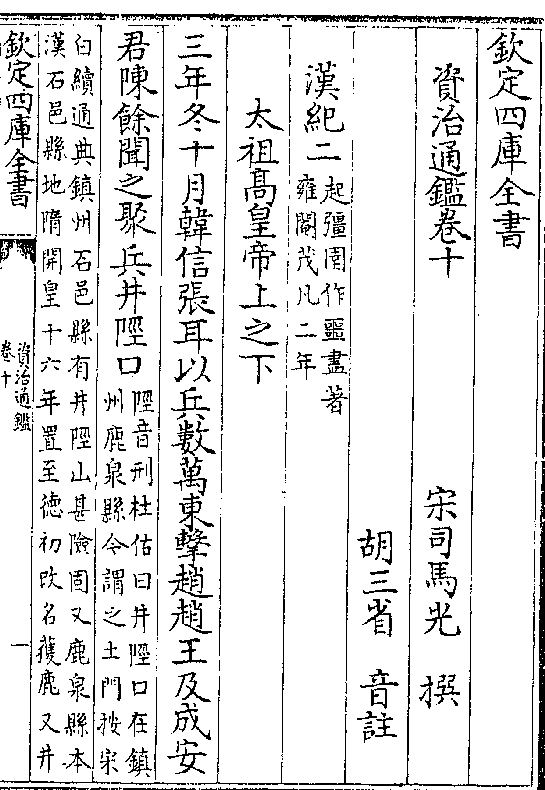 欽定四庫全書
資治通鑑卷十
宋司馬光 撰
胡三省 音註
漢紀二
起彊圉作噩盡著
雍閹茂凡二年
太祖髙皇帝上之下
三年冬十月韓信張耳以兵數萬東擊趙趙王及成安
君陳餘聞之聚兵井陘口
陘音刑杜佑曰井陘口在鎮
州鹿泉縣今謂之土門按宋
白續通典鎮州石邑縣有井陘山甚險固又鹿泉縣本
漢石邑縣地隋開皇十六年置至徳初改名獲鹿又井
欽定四庫全書
資治通鑑
卷十
一